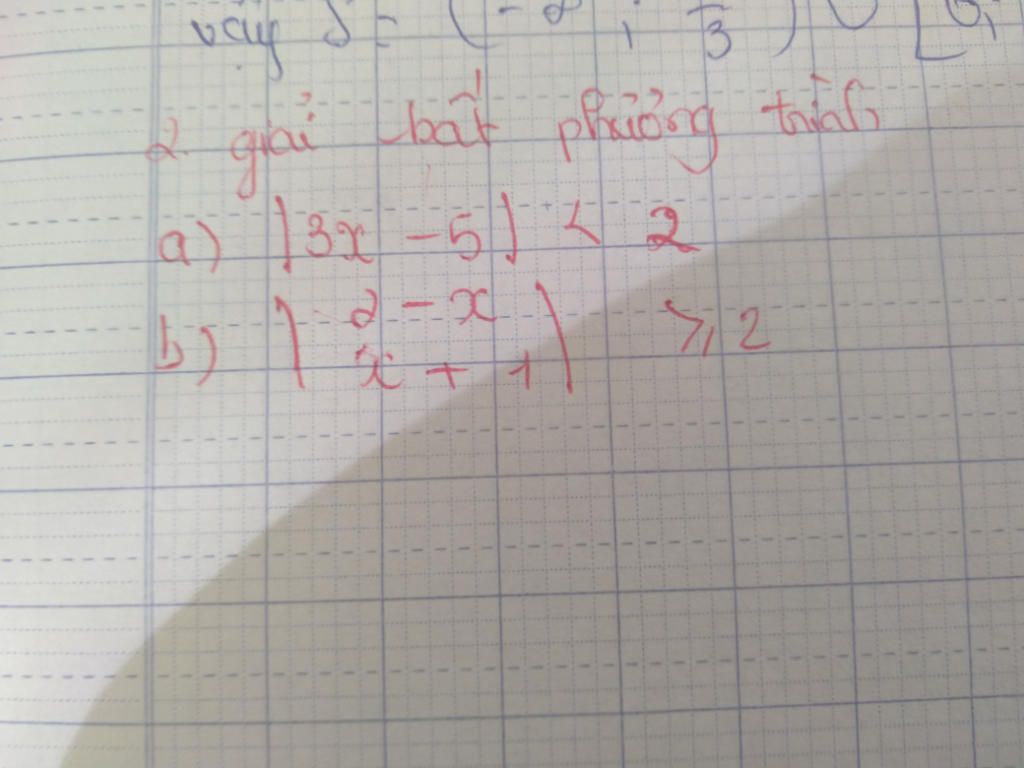 vậy S = (-∞; /3) ∪ [0;
2. giải bất phương trình
a) |3x - 5| < 2
b) | 2 - x
x + 1 | ⩾ 2